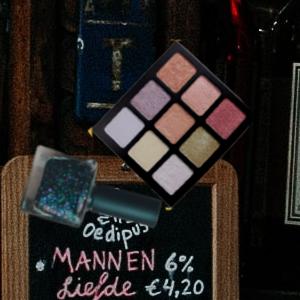 T
Oedipus
MANNEN 6%
Liefde €4,20